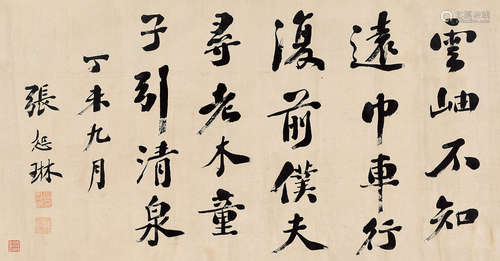 雲岫不知
遠巾車行
復前僕夫
尋老木童
子引清泉
丁未九月
張㤚琳